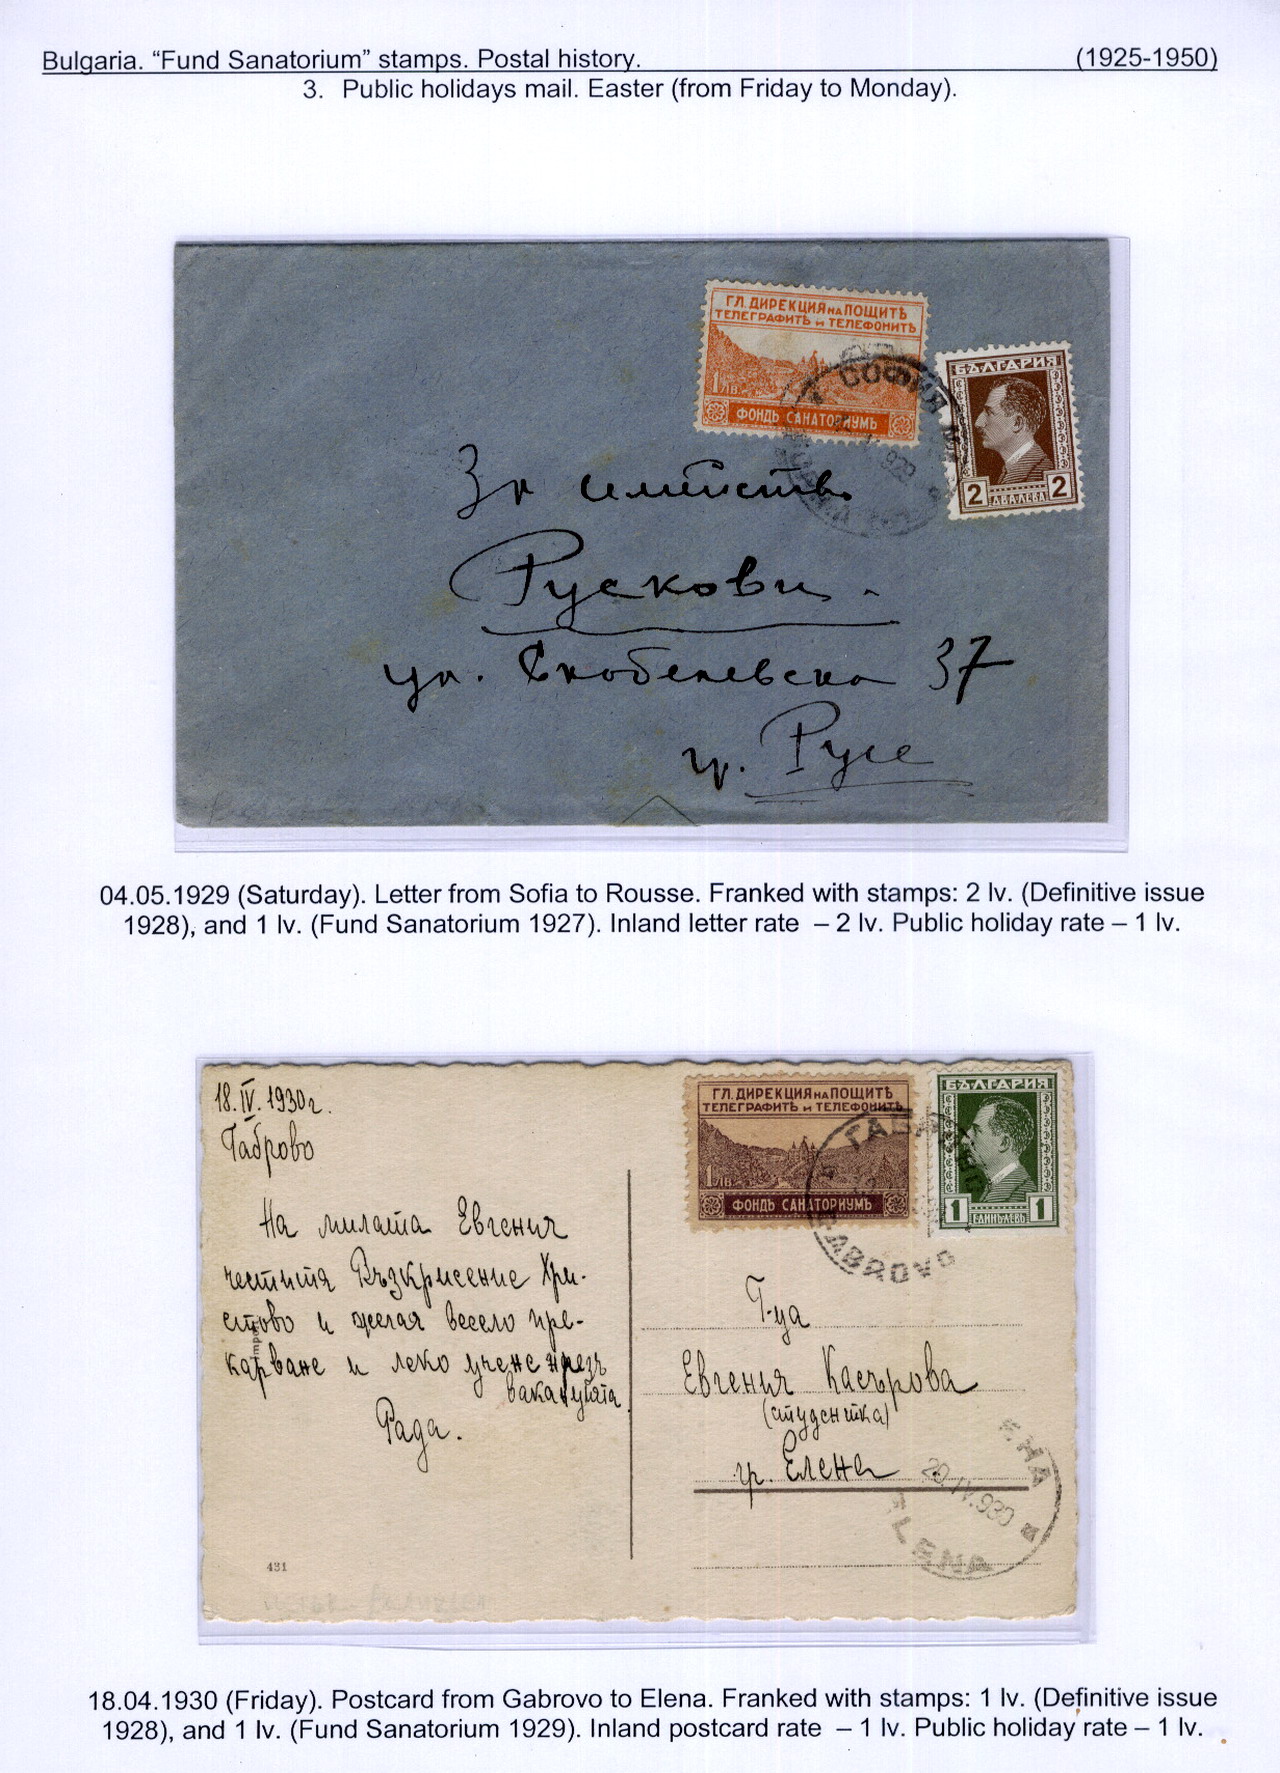 Bulgaria. “Fund Sanatorium” stamps. Postal history. (1925-1950)
3. Public holidays mail. Easter (from Friday to Monday).
ГЛ. ДИРЕКЦИЯ НА ПОЩИТѢ
ТЕЛЕГРАФИТѢ И ТЕЛЕФОНИТѢ
1 ЛВ.
ФОНДЪ САНАТОРИУМЪ
БЪЛГАРИЯ
2 ДВА ЛЕВА 2
СОФИЯ
За семейств
Рускови.
ул. Скобелевска 37
гр. Русе
04.05.1929 (Saturday). Letter from Sofia to Rousse. Franked with stamps: 2 lv. (Definitive issue
1928), and 1 lv. (Fund Sanatorium 1927). Inland letter rate – 2 lv. Public holiday rate – 1 lv.
18.IV.1930г.
Габрово
На милата Евгения
честитя Възкрисение Хри-
стово и желая весело пре-
карване и леко учене презъ
ваканцията
Рада.
431
ГЛ. ДИРЕКЦИЯ НА ПОЩИТѢ
ТЕЛЕГРАФИТѢ И ТЕЛЕФОНИТѢ
1 ЛВ.
ФОНДЪ САНАТОРИУМЪ
БЪЛГАРИЯ
1 ЕДИНЪ ЛЕВЪ 1
GABROVO
Г-ца
Евгения Касърова
(студентка)
гр. Елена
20.IV.930
ELENA
18.04.1930 (Friday). Postcard from Gabrovo to Elena. Franked with stamps: 1 lv. (Definitive issue
1928), and 1 lv. (Fund Sanatorium 1929). Inland postcard rate – 1 lv. Public holiday rate – 1 lv.